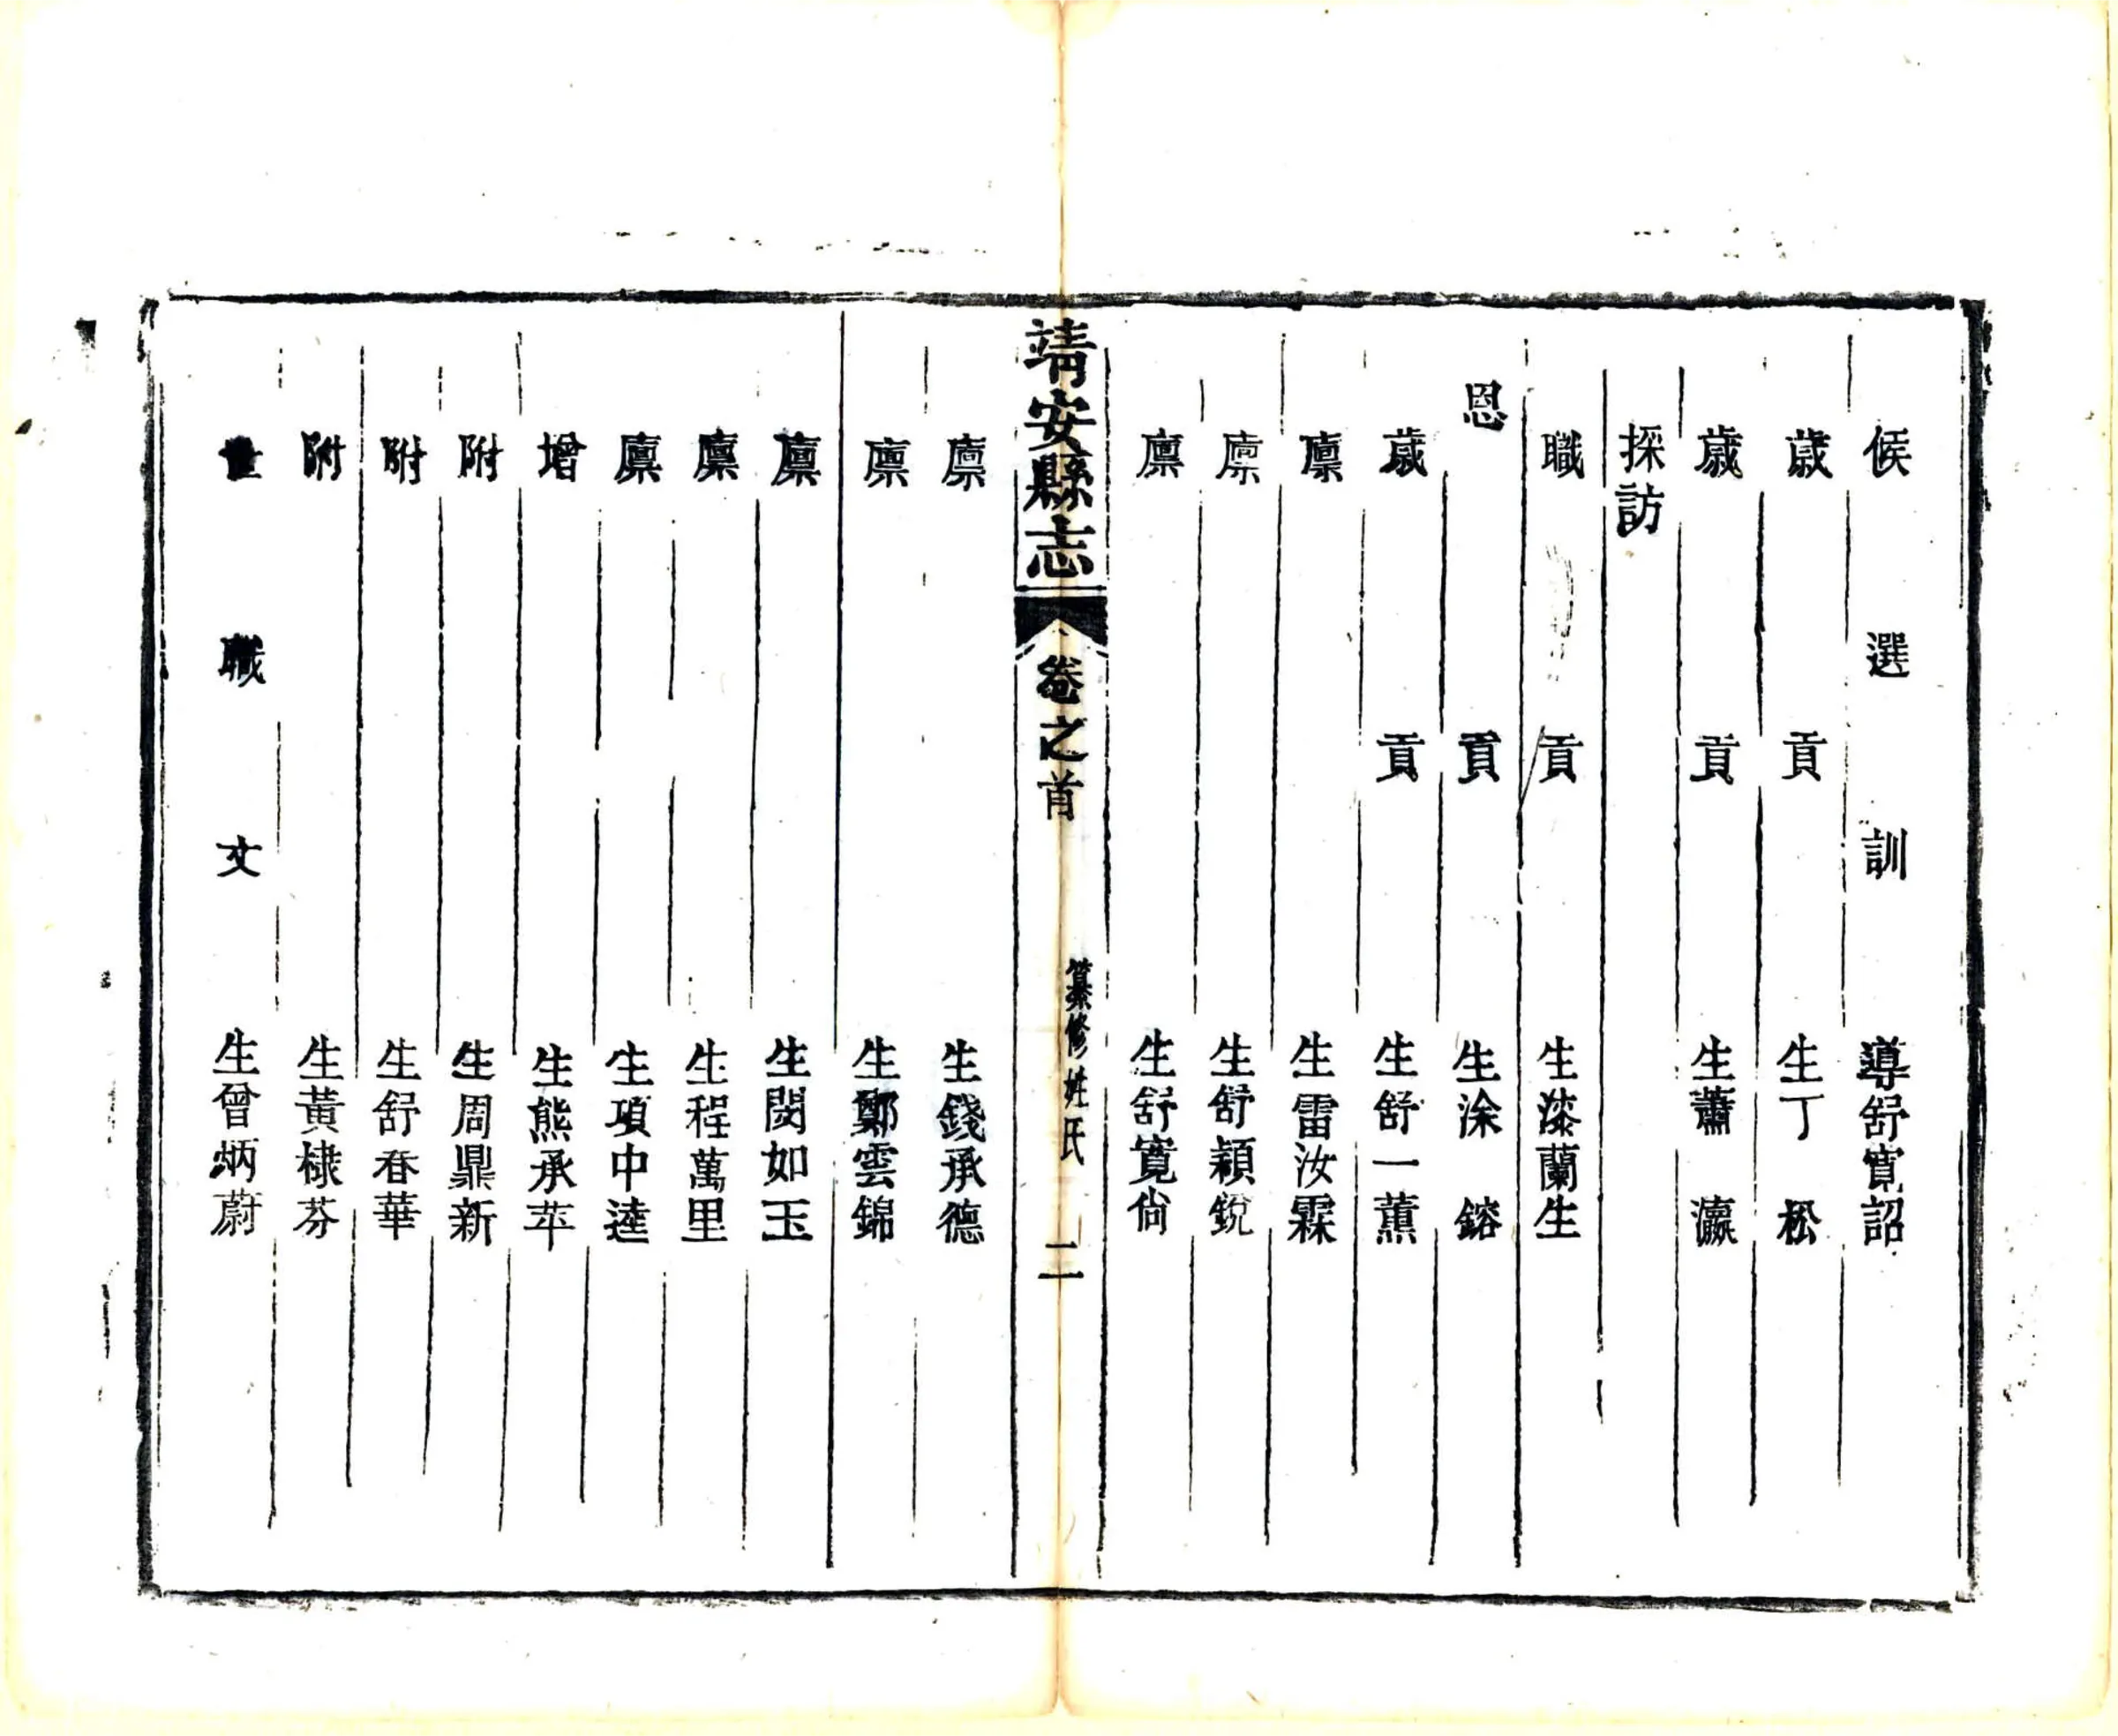 候選訓導舒寬詔
歲貢生丁松
歲貢生蕭瀛
採訪
職貢生漆蘭生
恩貢生涂鎔
歲貢生舒一薰
廪生雷汝霖
廪生舒穎銳
廪生舒寬尙
靖安縣志 卷之首 纂修姓氏 二
廪生錢承德
廪生鄭雲錦
廪生閔如玉
廪生程萬里
廪生項中逵
增生熊承苹
附生周鼎新
附生舒春華
附生黃棣芬
職文生曾炳蔚